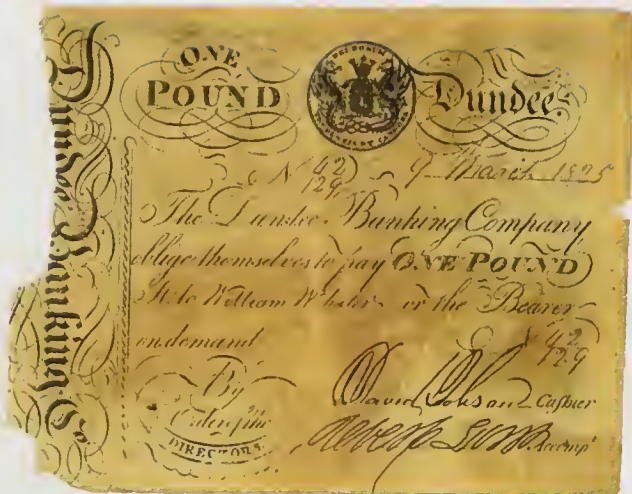 Dundee Banking Co
ONE
POUND
DEI DONUM
Dundee
No 42/129 9 March 1825
The Dundee Banking Company
oblige themselves to pay ONE POUND
St. to William or the Bearer
on demand No 42/129
By
Order of the
DIRECTORS
David Cashier
Accompt